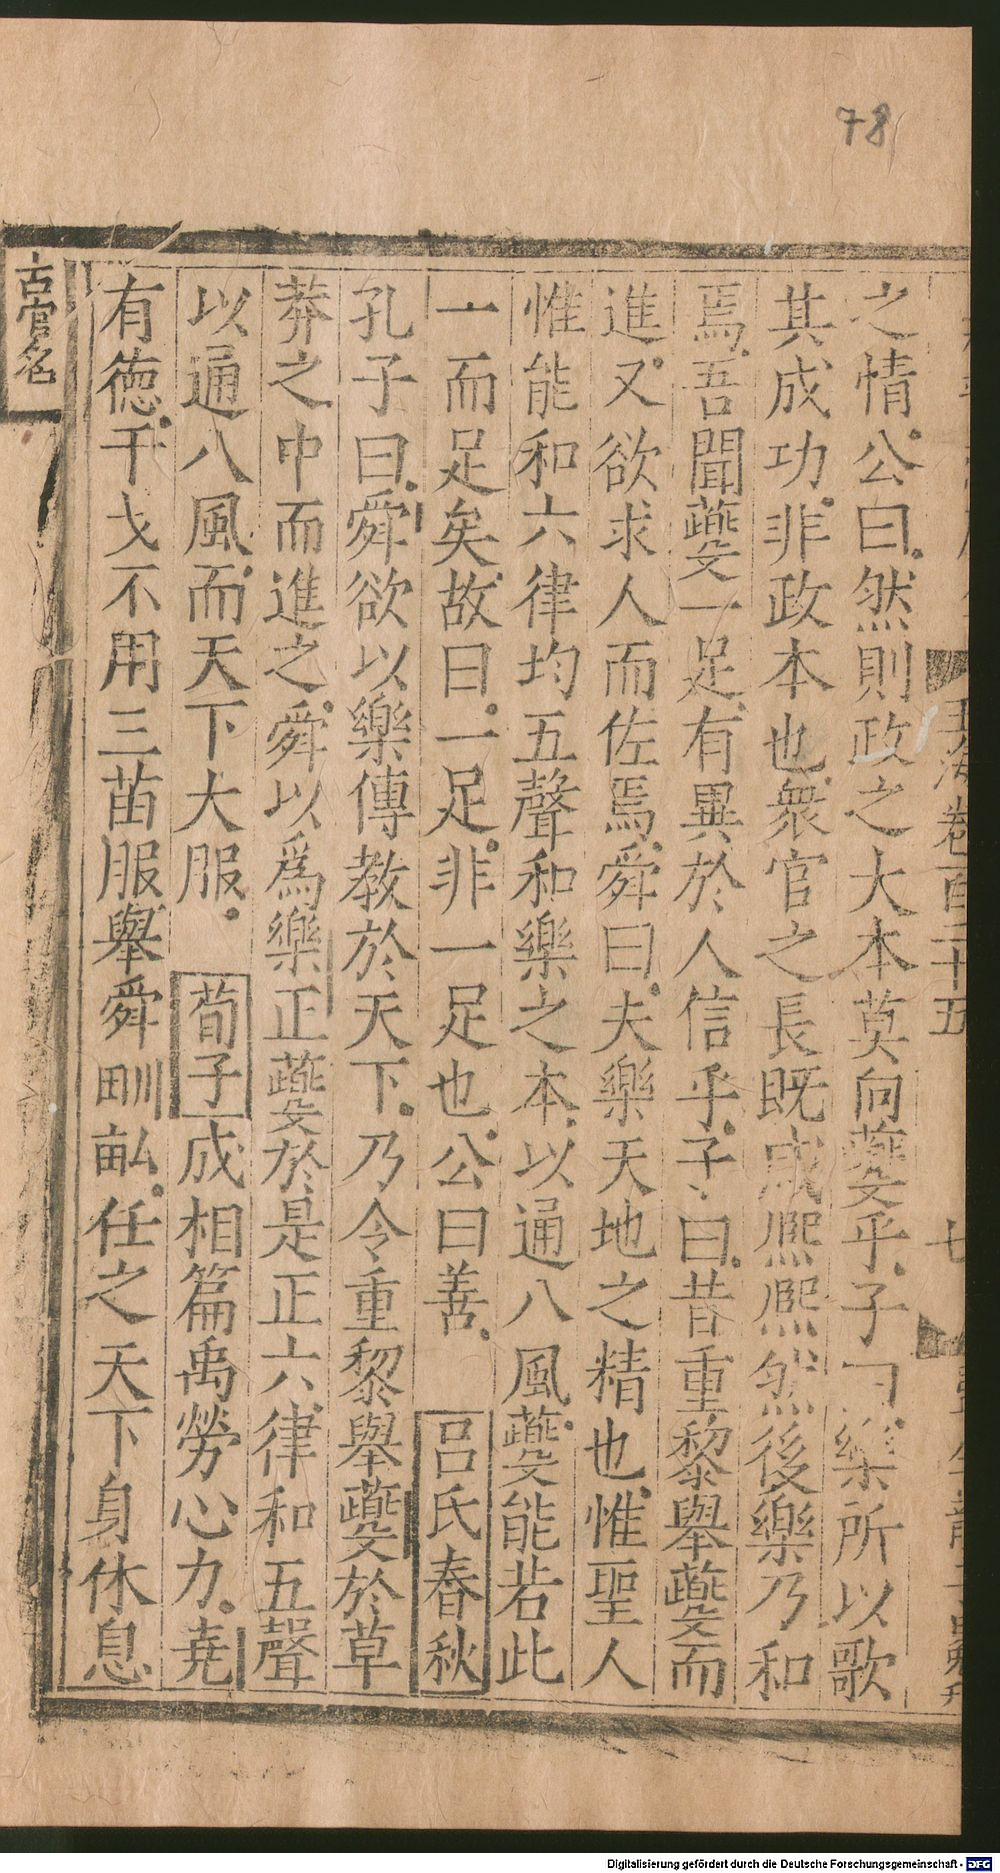 78
玉海卷百二十五
七
之情公曰然則政之大本莫向夔乎子曰樂所以歌
其成功非政本也衆官之長既咸熙熙然後樂乃和
焉吾聞夔一足有異於人信乎子曰昔重黎舉夔而
進又欲求人而佐焉舜曰夫樂天地之精也惟聖人
惟能和六律均五聲和樂之本以通八風夔能若此
一而足矣故曰一足非一足也公曰善 呂氏春秋
孔子曰舜欲以樂傳教於天下乃令重黎舉夔於草
莽之中而進之舜以爲樂正夔於是正六律和五聲
以通八風而天下大服 荀子成相篇禹勞心力堯
有德干戈不用三苗服舉舜甽畝任之天下身休息
古官名
Digitalisierung gefördert durch die Deutsche Forschungsgemeinschaft - DFG